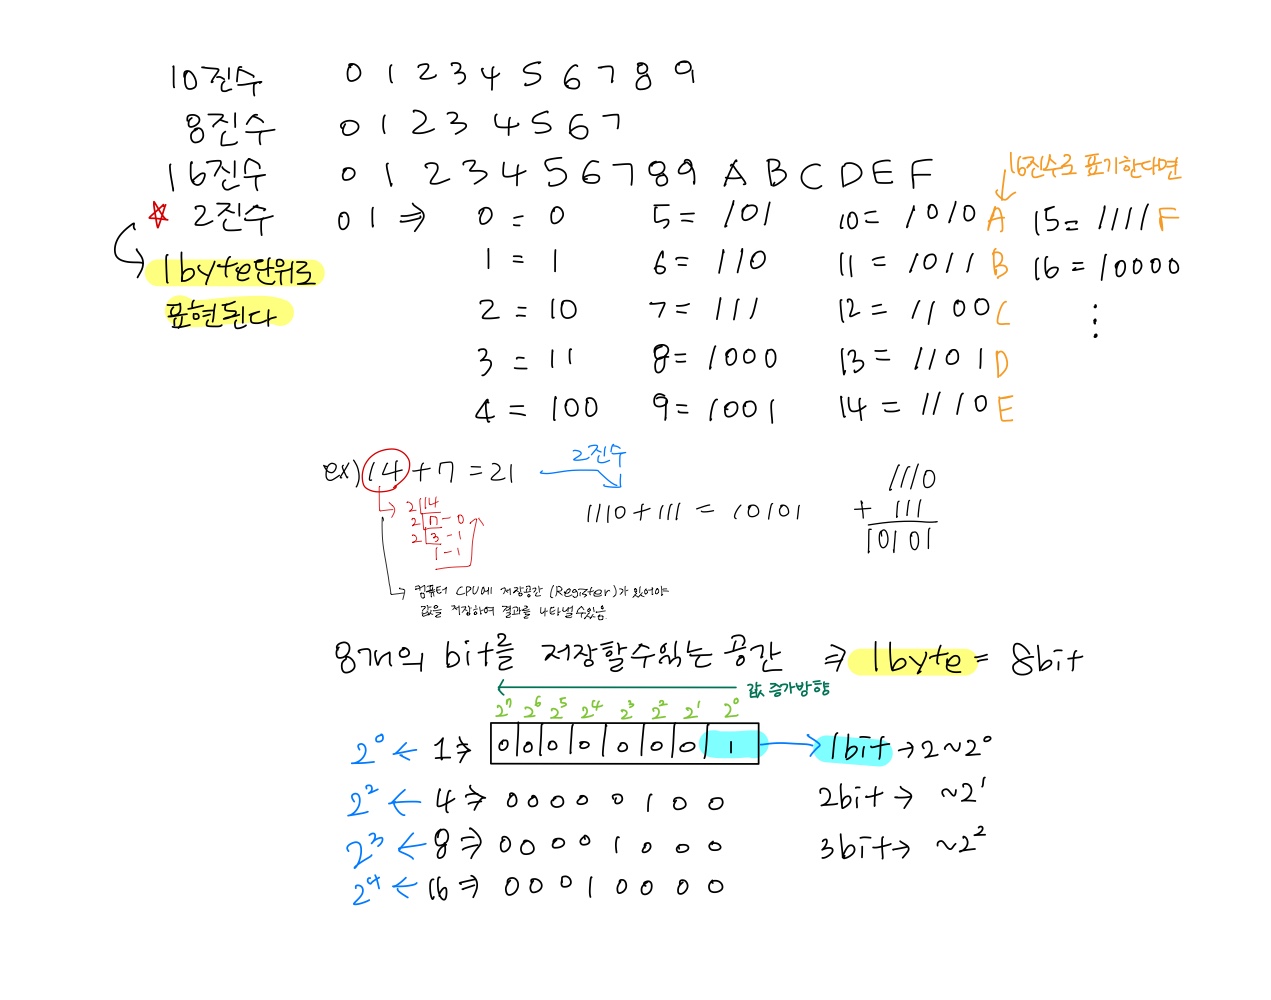 10진수 0 1 2 3 4 5 6 7 8 9
8진수 0 1 2 3 4 5 6 7
16진수 0 1 2 3 4 5 6 7 8 9 A B C D E F
16진수로 표기한다면
☆ 2진수 0 1 ⇒ 0 = 0 5 = 101 10 = 1010 A 15 = 1111 F
1byte단위로 1 = 1 6 = 110 11 = 1011 B 16 = 10000
표현된다 2 = 10 7 = 111 12 = 1100 C ⋮
3 = 11 8 = 1000 13 = 1101 D
4 = 100 9 = 1001 14 = 1110 E
ex) 14 + 7 = 21 → 2진수
1110 + 111 = 10101
1110
+ 111
10101
2 14
2 7 - 0
2 3 - 1
1 - 1
컴퓨터 CPU에 저장공간 (Register)가 있어야
값을 저장하여 결과를 나타낼수있음.
8개의 bit를 저장할수있는 공간 ⇒ 1byte = 8bit
값 증가방향
2⁷ 2⁶ 2⁵ 2⁴ 2³ 2² 2¹ 2⁰
2⁰ ← 1 ⇒ 0 0 0 0 0 0 0 1 → 1bit → 2 ~ 2⁰
2² ← 4 ⇒ 0 0 0 0 0 1 0 0 2bit → ~2¹
2³ ← 8 ⇒ 0 0 0 0 1 0 0 0 3bit → ~2²
2⁴ ← 16 ⇒ 0 0 0 1 0 0 0 0